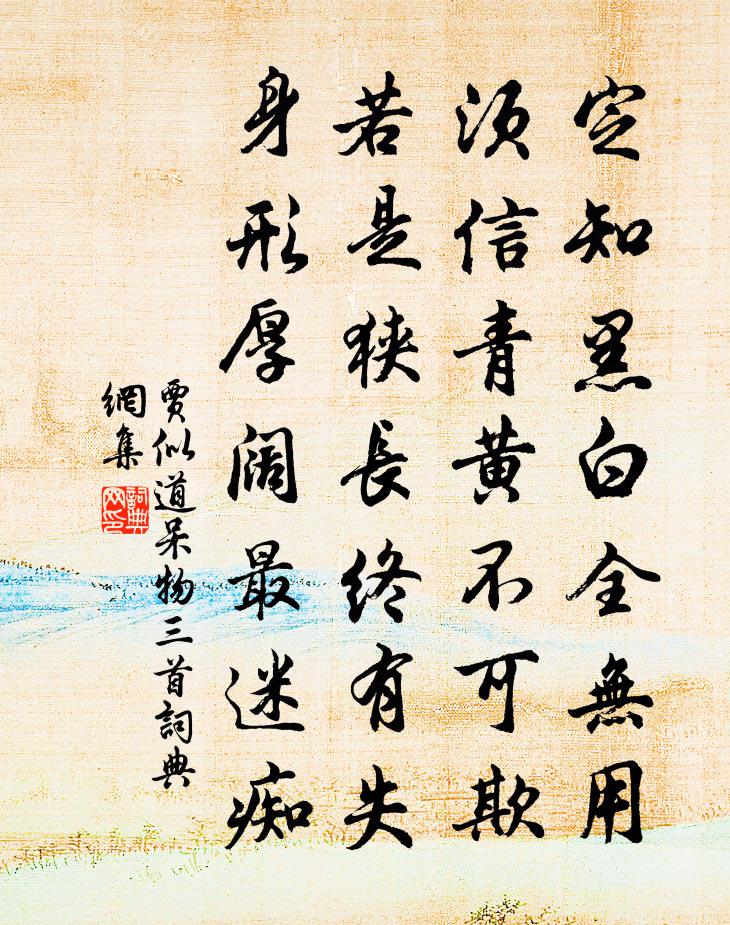 定知黑白全無用
須信青黃不可欺
若是狹長終有失
身形厚闊最迷痴
賈似道呆物三首詞典
網集
詞典
网印